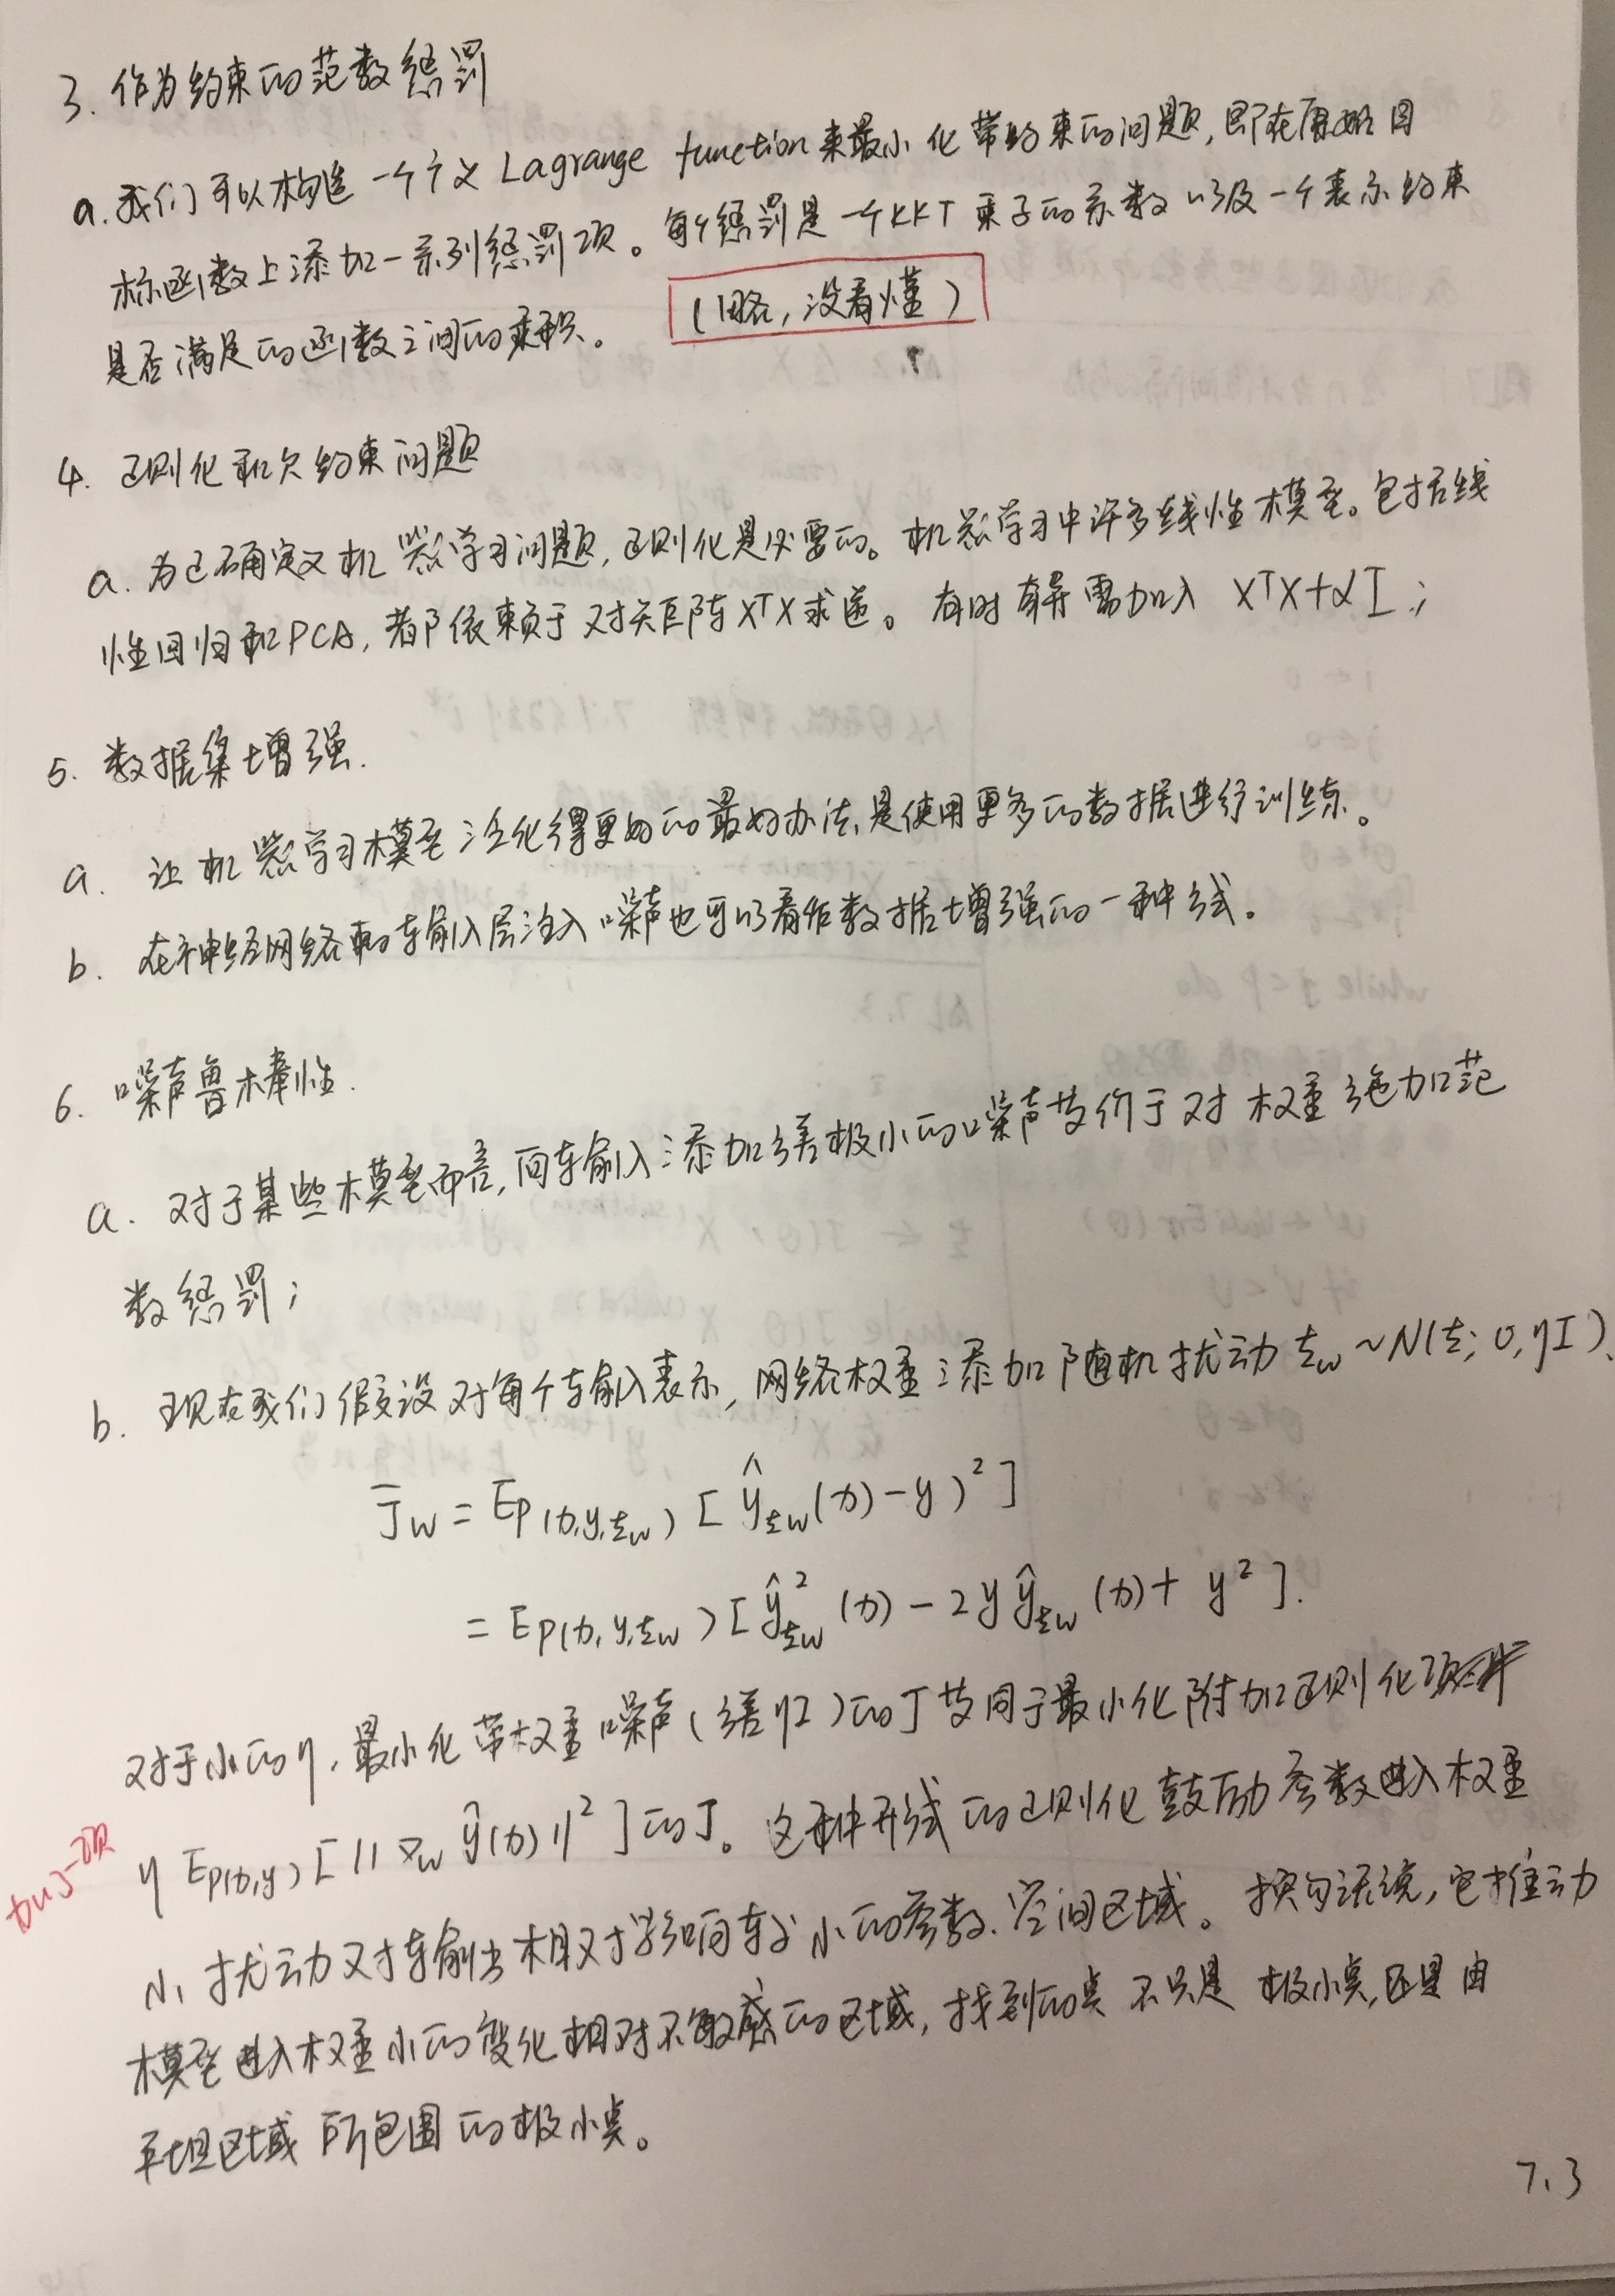 3. 作为约束的范数惩罚
a. 我们可以构造一个广义 Lagrange function 来最小化带约束的问题, 即在原始目
标函数上添加一系列惩罚项。每个惩罚是一个KKT 乘子的系数以及一个表示约束
是否满足的函数之间的乘积。 (略, 没看懂)
?
4. 正则化和欠约束问题
a. 为正确定义机器学习问题, 正则化是必要的。机器学习中许多线性模型。包括线
性回归和PCA, 都依赖于对矩阵 XᵀX 求逆。有时需加入 XᵀX+αI;
5. 数据集增强.
a. 让机器学习模型泛化得更好的最好办法是使用更多的数据进行训练。
b. 在神经网络的输入层注入噪声也可以看作数据增强的一种方式。
6. 噪声鲁棒性.
a. 对于某些模型而言, 向输入添加方差极小的噪声等价于对权重施加范
数惩罚;
b. 现在我们假设对每个输入表示, 网络权重添加随机扰动 ε_w ~ N(ε; 0, ηI)、
J̄_W = E_P(x,y,ε_w) [ ŷ_ε_w(x) - y )² ]
= E_P(x,y,ε_w) [ ŷ²_ε_w (x) - 2y ŷ_ε_w (x) + y² ].
对于小的η, 最小化带权重噪声(方差ηI)的J等同于最小化附加正则化项
加了一项 η E_P(x,y) [ ||∇_W ŷ(x)||² ] 的J。这种形式的正则化鼓励参数进入权重
小扰动对输出相对影响较小的参数空间区域。换句话说, 它推动
模型进入权重小的变化相对不敏感的区域, 找到的点不只是极小点, 还是由
平坦区域所包围的极小点。
7.3